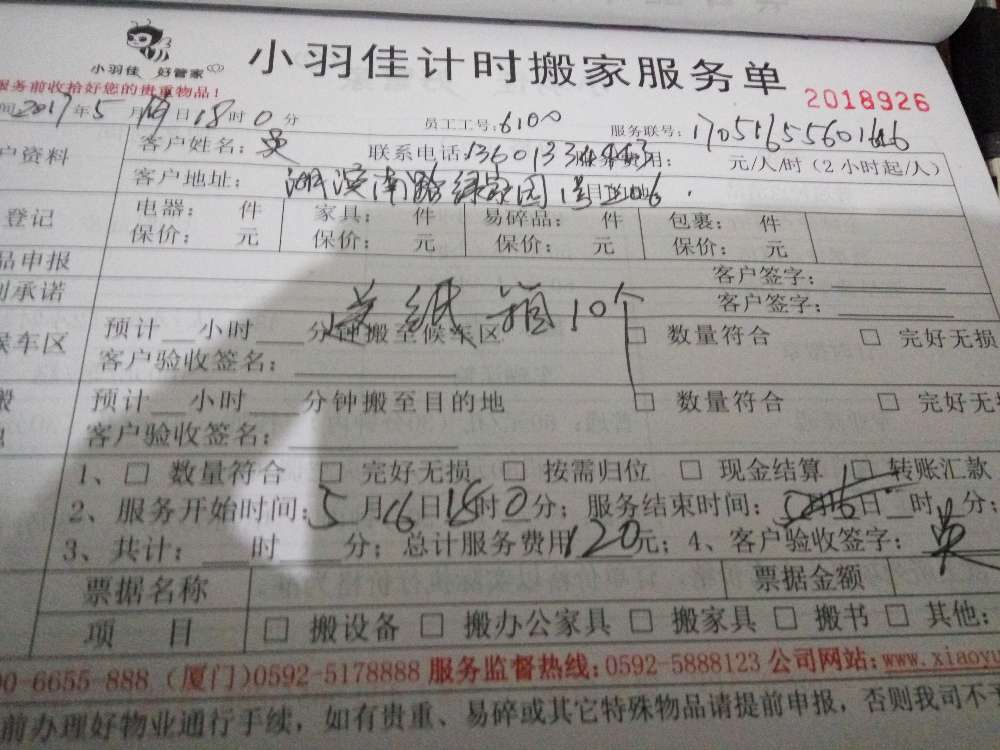 小羽佳 好管家
小羽佳计时搬家服务单
服务前收拾好您的贵重物品！
2018926
间2017年5月 日18时0分 员工工号：6100 服务联号：
户资料 客户姓名：吴 联系电话： 用： 元/人/时（2小时起/人）
客户地址：湖滨南路绿家园
登记 电器： 件 家具： 件 易碎品： 件 包裹： 件
保价： 元 保价： 元 保价： 元 保价： 元
品申报 客户签字：
承诺 客户签字：
纸箱10个
候车区 预计__小时__分钟搬至候车区 □ 数量符合 □ 完好无损
客户验收签名：
搬 预计__小时__分钟搬至目的地 □ 数量符合 □ 完好无损
地 客户验收签名：
1、□ 数量符合 □ 完好无损 □ 按需归位 □ 现金结算 □ 转账汇款
2、服务开始时间：5月16日18时0分；服务结束时间：5月16日__时__分；
3、共计：__时__分；总计服务费用120元；4、客户验收签字：吴
票据名称 票据金额
项 目 □ 搬设备 □ 搬办公家具 □ 搬家具 □ 搬书 □ 其他：
00-6655-888（厦门）0592-5178888 服务监督热线：0592-5888123 公司网站：www.xiaoyu
前办理好物业通行手续，如有贵重、易碎或其它特殊物品请提前申报，否则我司不